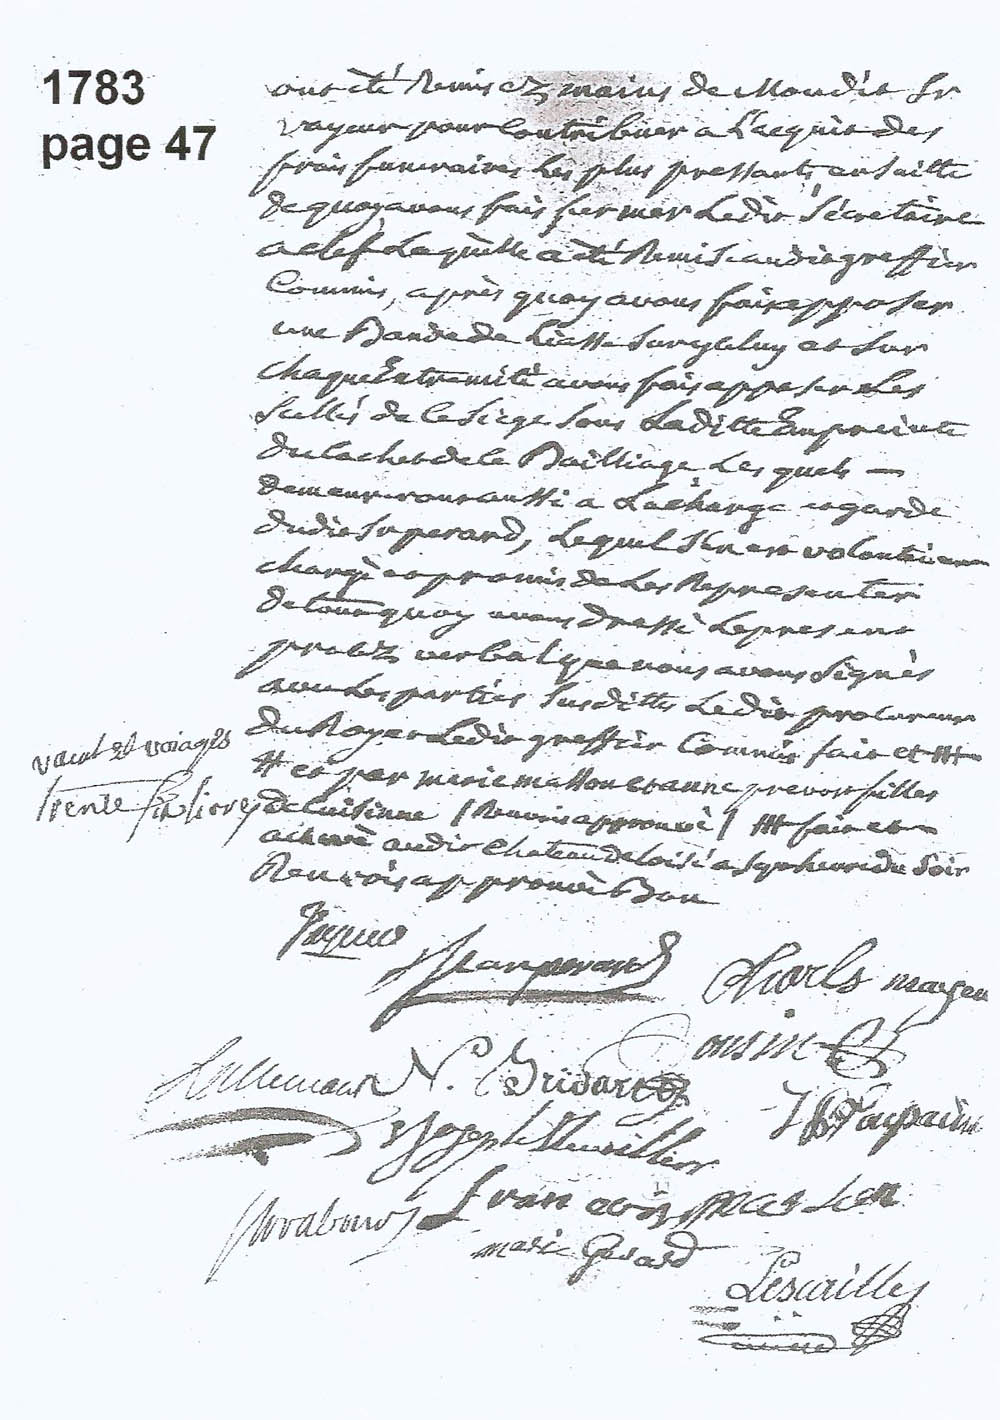 1783
page 47
ont été Remis ez mains de Mondit Sr
Vayeur pour Contribuer a L'acquit des
frais funeraires Les plus pressants ensuitte
de quoy avons fait fermer Ledit Sécretaire
a clef Laquelle a été Remise audit greffier
Commis, après quoy avons fait apposer
une Bande de Liasse sur yceluy et sur
chaque Extremité avons fait apposer Les
Scellés de ce Siege sous Laditte Empreinte
du Cachet de ce Bailliage Les quels
demeureront aussi a La charge et garde
dudit Sr perard, Lequel s'en est volontairemt
chargé et promis de Les Representer
de tout quoy avons dressé Le present
procez verbal que nous avons signés
avec Les parties susdittes Ledit procureur
du Roy et Ledit greffier Commis fait et
et par marie masson et anne prevot filles
de cuisinne / Renvois approuvé / fait et
achevé audit chateau de a sept heures du soir
Renvois approuvé Bon
vacat et voiages
trente six livres
Jean perard
Charls
Cousin
Lallemant N. Bridart
Joseph
francois
marie Gerard
Lescaille